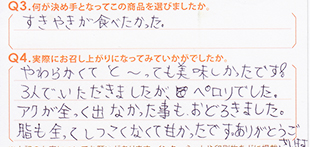 Q3.何が決め手となってこの商品を選びましたか。
すきやきが食べたかった。
Q4.実際にお召し上がりになってみていかがでしたか。
やわらかくて と〜っても美味しかったです!
3人でいただきましたが、ペロリでした。
アクが全っく出なかった事も、おどろきました。
脂も全くしつこくなくて甘かったです。ありがとうご
ざいます